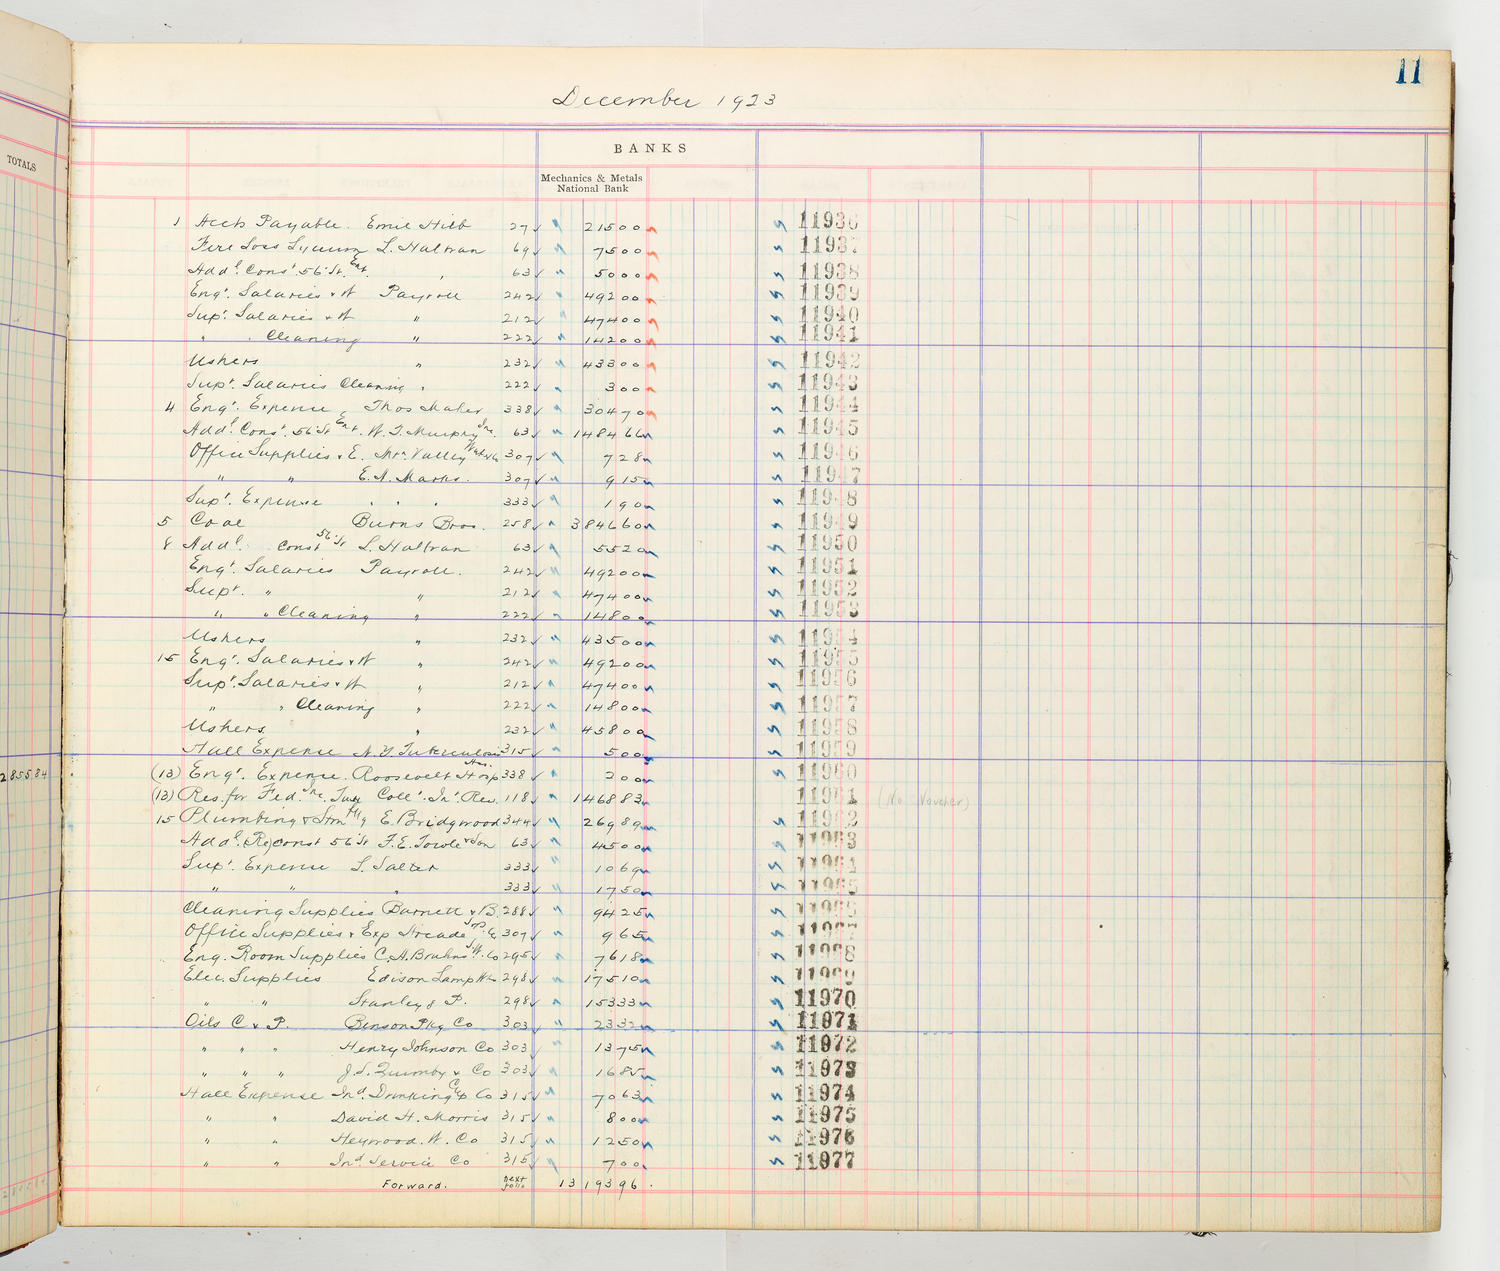 11
December 1923
TOTALS
BANKS
Mechanics & Metals
National Bank
1 Accts Payable. Emil Hilb 27 21500 11936
Fire Loss L. Haltran 69 7500 11937
Add'l Const. 56 St. Ent. " 63 5000 11938
Eng'. Salaries & W Payroll 242 49200 11939
Sup'. Salaries & W " 212 47400 11940
" " Cleaning " 222 14200 11941
Ushers " 232 43300 11942
Sup'. Salaries Cleaning " 222 300 11943
4 Eng'. Expense Thos Maher 338 30470 11944
Add'l Const. 56 St Ent. W. J. Murphy Inc. 63 148466 11945
Office Supplies & E. Mtn Valley Water Co 307 728 11946
" " E. A. Marks. 307 915 11947
Sup'. Expense " " " 333 190 11948
5 Coal Burns Bros. 258 384660 11949
8 Add'l. Const 56 St L. Haltran 63 5520 11950
Eng'. Salaries Payroll. 242 49200 11951
Sup'. " " 212 47400 11952
" " Cleaning " 222 14800 11953
Ushers " 232 43500 11954
15 Eng'. Salaries & W " 242 49200 11955
Sup'. Salaries & W " 212 47400 11956
" " Cleaning " 222 14800 11957
Ushers. " 232 45800 11958
Hall Expense N. Y. Tuberculosis 315 500 11959
(13) Eng'. Expense. Roosevelt Hosp 338 200 11960
(13) Res. for Fed. Inc. Tax Coll'. In'. Rev. 118 146883 11961 (No Voucher)
15 Plumbing & Stm Htg E. Bridgwood 344 26989 11962
Add'l. (Re)const 56 St F. E. Towle & Son 63 4500 11963
Sup'. Expense L. Salter 333 1069 11964
" " " 333 1750 11965
Cleaning Supplies Barnett & B. 288 9425 11966
Office Supplies & Exp Arcade 307 965 11967
Eng. Room Supplies C. H. Bruhns W. Co 295 7618 11968
Elec. Supplies Edison Lamp Wks 298 17510 11969
" " Stanley & P. 298 15333 11970
Oils C & P. Benson Pkg Co 303 2332 11971
" " " Henry Johnson Co 303 1375 11972
" " " J. L. Quimby & Co 303 1685 11973
Hall Expense Ind. Drinking Cup Co 315 7063 11974
" " David H. Morris 315 800 11975
" " Heywood. W. Co 315 1250 11976
" " Ind. Service Co 315 700 11977
Forward. next folio 1319396
285584